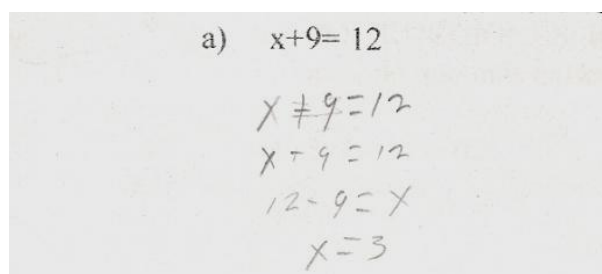 a) x+9= 12
x ≠ 9 = 12
x - 9 = 12
12 - 9 = x
x = 3